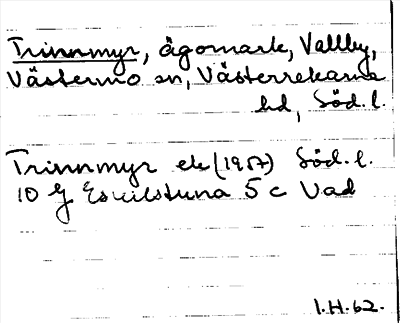 Trinnmyr, ägomark, Vallby,
Västermo sn, Västerrekarne
hd, Söd. l.
Trinnmyr ek (1957) Söd. l.
10 G Eskilstuna 5 c Vad
I.H.62.